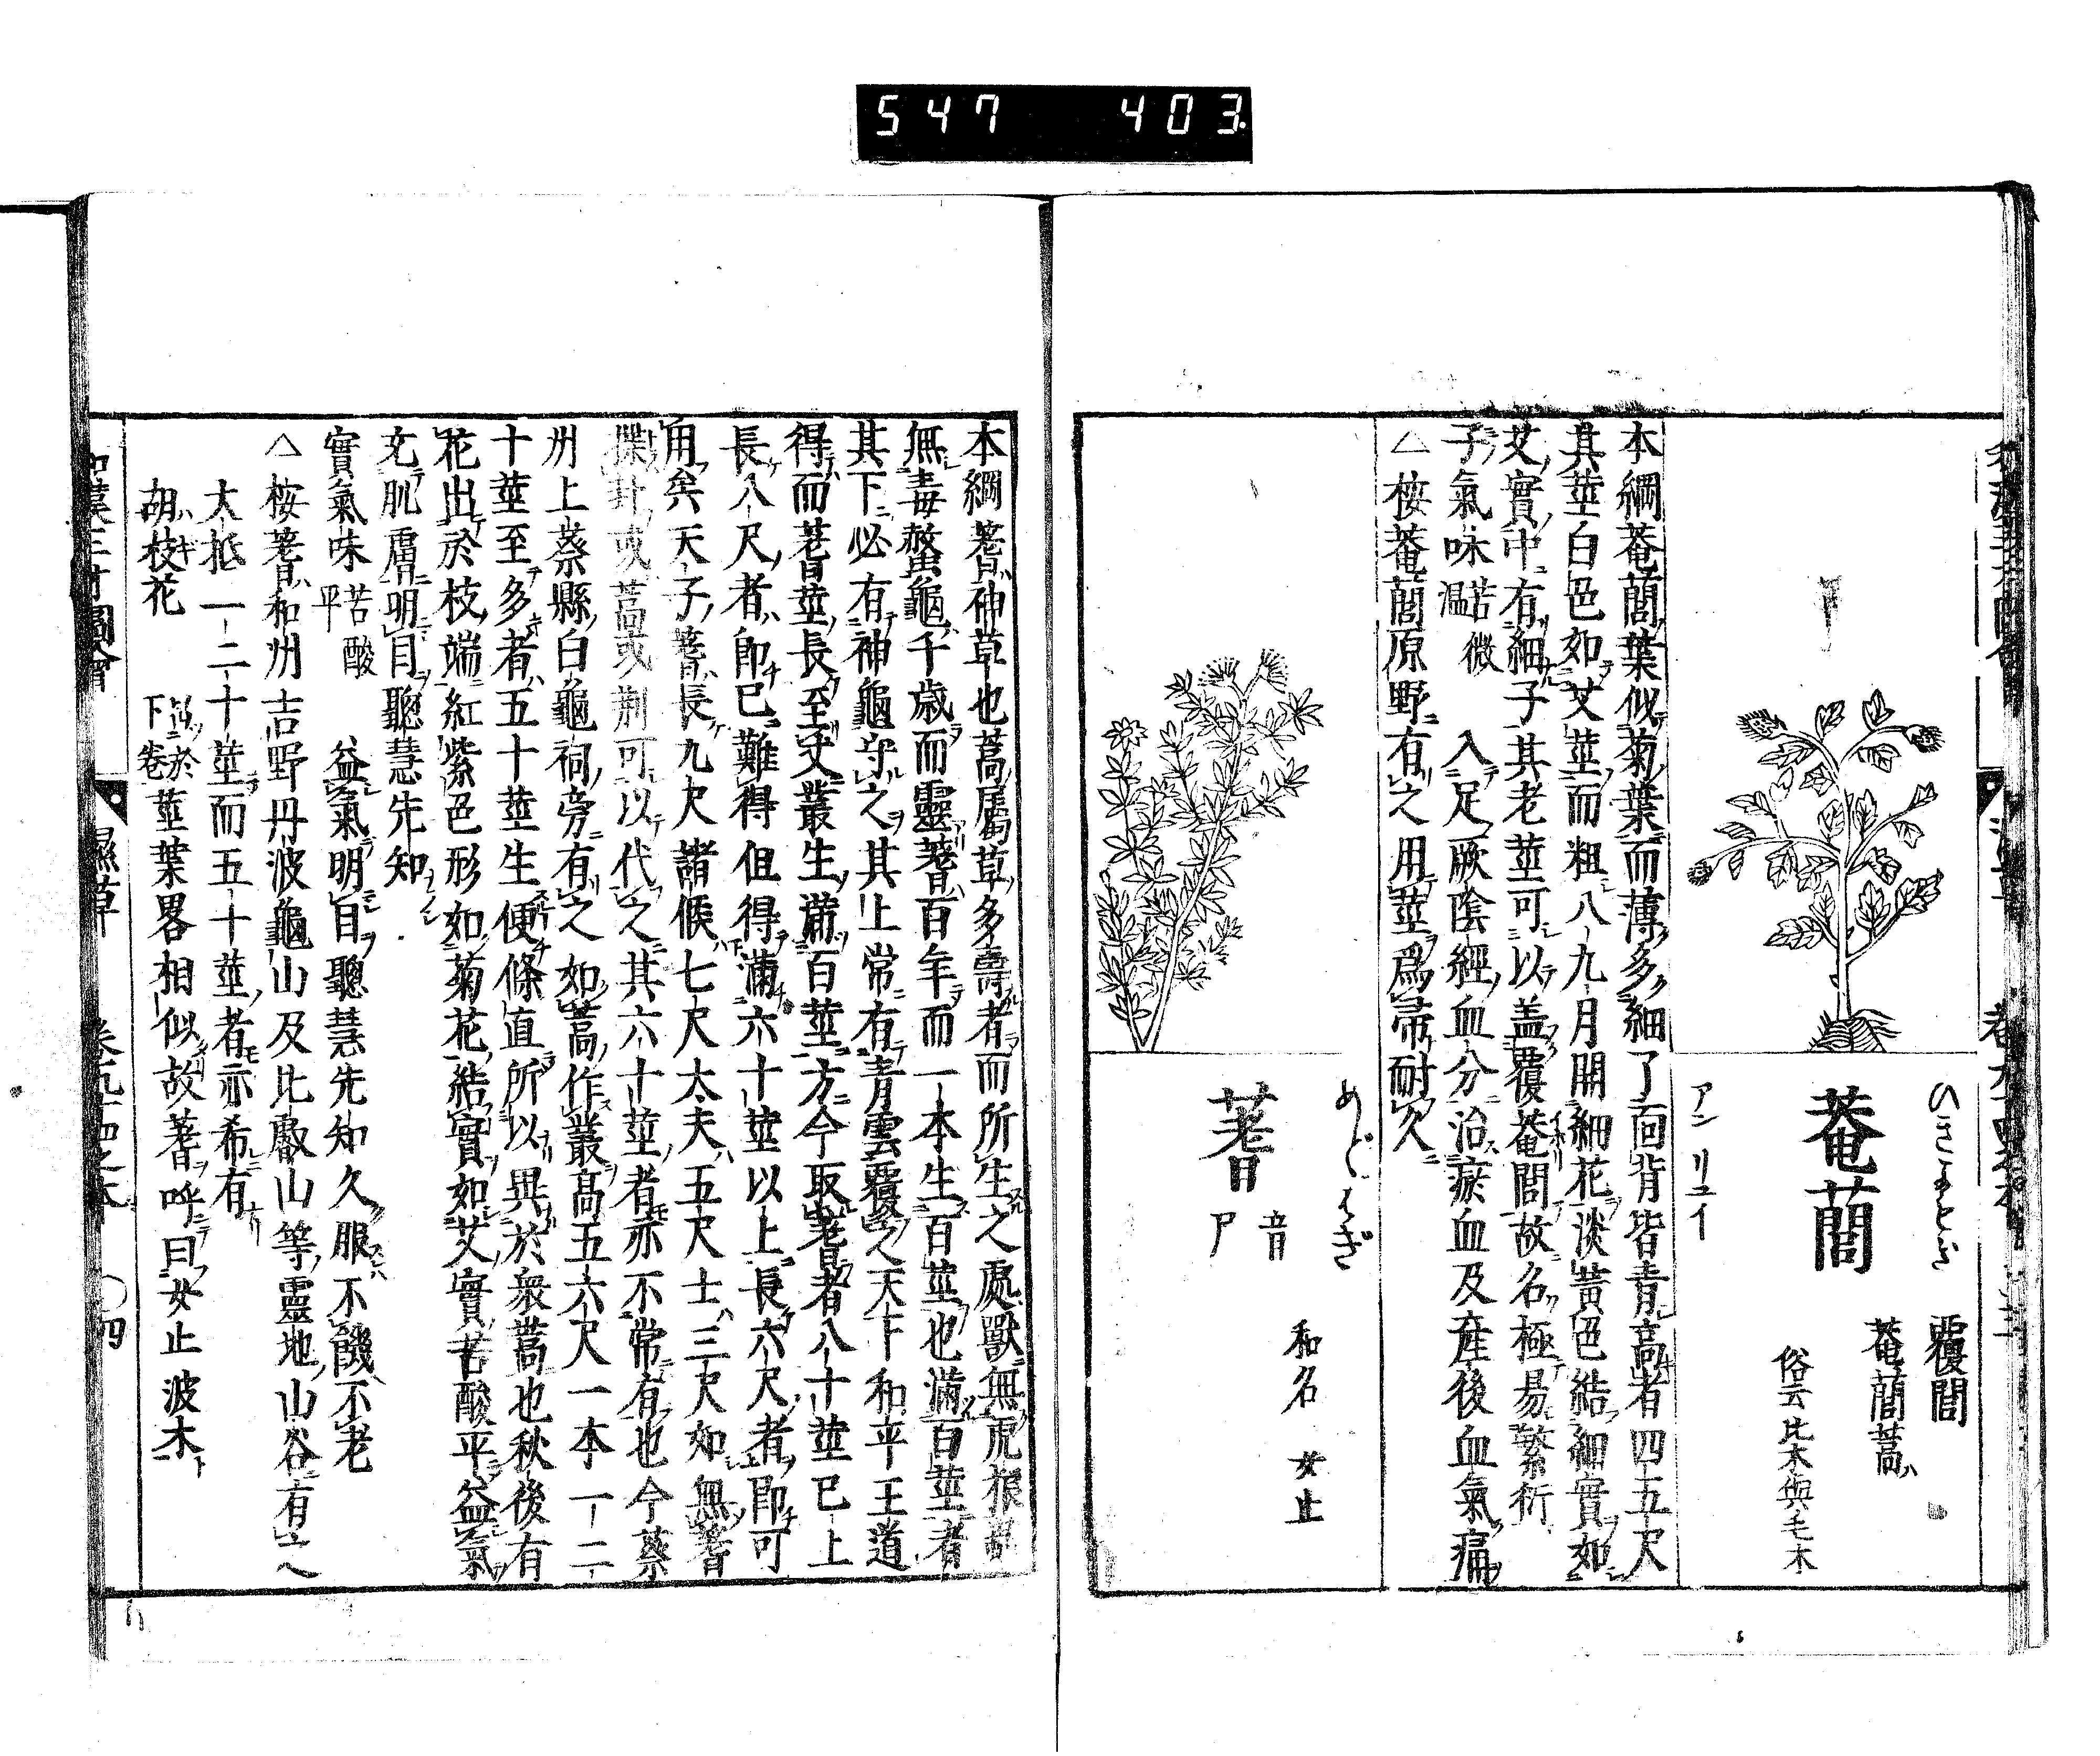 547 403
ひきよもぎ
覆閭
菴䕡蒿
菴䕡
俗云比木與毛木
アンリユイ
本綱菴䕡葉似菊葉而薄多細了面背皆青高者四五尺
其莖白色如艾莖而粗八九月開細花淡黃色結細實如
艾實中有細子其老莖可以盖覆菴閭故名極易繁衍
子氣味苦微温 入足厥陰經血分治瘀血及産後血氣痛
△按菴䕡原野有之用莖爲帚耐久
めどはぎ
蓍
音尸
和名 女止
本綱蓍神草也蒿屬草多壽者而所生之處獸無虎狼
無毒螫龜千歳而靈蓍百年而一本生百莖也滿百莖者
其下必有神龜守之其上常有青雲覆之天下和平王道
得而蓍莖長至丈叢生滿百莖方今取蓍者八十莖已上
長八尺者即已難得但得滿六十莖以上長六尺者即可
用矣天子蓍長九尺諸候七尺太夫五尺士三尺如無蓍
揲卦或蒿或荆可以代之其六十莖者亦不常有也今蔡
州上蔡縣白龜祠旁有之如蒿作叢高五六尺一本一二
十莖至多者五十莖生便條直所以異於衆蒿也秋後有
花出於枝端紅紫色形如菊花結實如艾實苦酸平益氣
充肌膚明目聰慧先知
實氣味苦酸平 益氣明目聰慧先知久服不饑不老
△按蓍和州吉野丹波龜山及比叡山等靈地山谷有之
大抵一二十莖而五十莖者亦希有
胡枝花 於下卷莖葉畧相似故蓍呼曰女止波木
濕草